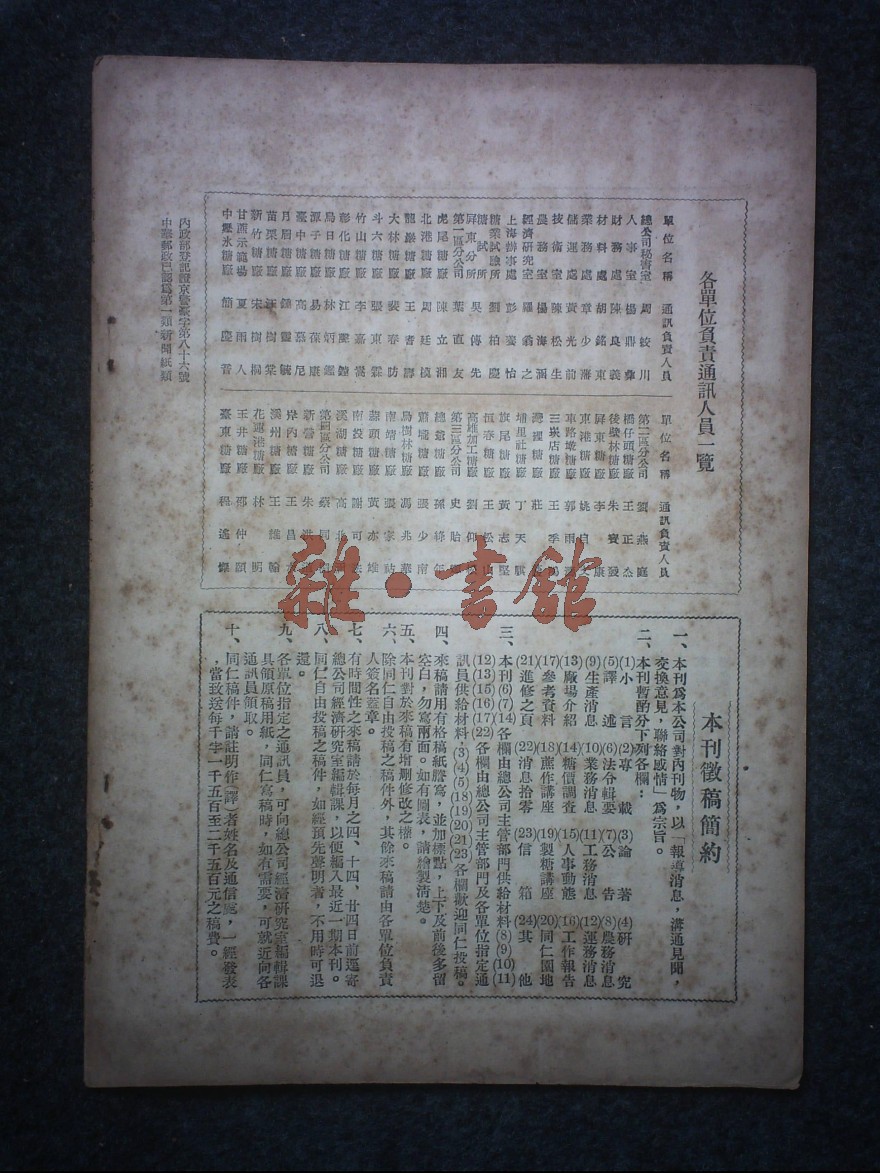 各單位負責通訊人員一覽
單位名稱 通訊負責人員
總公司秘書室 周蛟川
人事室 楊鼎彝
財務處 陳良義
材料處 胡銘東
業務處 章少濤
儲運處 黃光前
技術室 陳松生
農務室 楊海涵
經濟研究室 羅翁之
上海辦事處 彭蔓怡
糖業試驗所 劉柏慶
糖試所屏東分所 吳傳先
第一區分公司 葉直友
虎尾糖廠 陳立湘
北港糖廠 周廷楨
龍巖糖廠 王者譯
大林糖廠 裴春防
斗六糖廠 張東霖
竹山糖廠 李嘉嵩
彰化糖廠 江慶鐘
烏日糖廠 林炳
潭子糖廠 易葆康
臺中糖廠 高慕尼
月眉糖廠 鍾靈毓
苗栗糖廠 汪樹棠
新竹糖廠 宋樹桐
甘蔗示範場 夏雨人
中壢氷糖廠 簡慶普
單位名稱 通訊負責人員
第二區分公司 劉燕庭
橋仔頭糖廠 王正杰
後壁林糖廠 朱寶發
屏東糖廠 李康
東港糖廠 姚自
車路墘糖廠 郭雨
三崁店糖廠 王季
灣裡糖廠 莊
埔里社糖廠 丁天
旗尾糖廠 黃志堅
恒春糖廠 王松山
高雄加工糖廠 劉仰
第三區分公司 史貽
總爺糖廠 孫
蕭壠糖廠 張少南
烏樹林糖廠 馮兆華
南靖糖廠 張家
蒜頭糖廠 黃亦雄
南投糖廠 謝可
溪湖糖廠 高北
第四區分公司 蔡同
新營糖廠 朱
岸內糖廠 王昌
溪州糖廠 王
花蓮港糖廠 林明
玉井糖廠 邵仲頤
臺東糖廠 程遙
內政部登記證京警臺字第八十六號
中華郵政已認為第一類新聞紙類
本刊徵稿簡約
一、本刊為本公司對內刊物，以「報導消息，溝通見聞，
交換意見，聯絡感情」為宗旨。
二、本刊暫酌分下列各欄：
(1)小言 (2)專載 (3)論著 (4)研究
(5)譯述 (6)法令輯要 (7)公告 (8)農務消息
(9)生產消息 (10)業務消息 (11)工務消息 (12)運務消息
(13)廠場介紹 (14)糖價調查 (15)人事動態 (16)工作報告
(17)參考資料 (18)蔗作講座 (19)製糖講座 (20)同仁園地
(21)進修之頁 (22)消息拾零 (23)信箱 (24)其他
三、本刊(6)(7)(14)各欄由總公司主管部門供給材料(8)(9)(10)(11)
(12)(13)(15)(16)(17)(22)各欄由總公司主管部門及各單位指定通
訊員供給材料(3)(4)(5)(18)(19)(20)(21)(23)各欄歡迎同仁投稿。
四、來稿請用有格稿紙謄寫，並加標點，上下及前後多留
空白，勿寫兩面。如有圖表，請繪製清楚。
五、本刊對於來稿有增刪修改之權。
六、除同仁自由投稿之稿件外，其餘來稿請由各單位負責
人簽名蓋章。
七、有時間性之來稿請於每月之四、十四、廿四日前逕寄
總公司經濟研究室編輯課，以便編入最近一期本刊。
八、同仁自由投稿之稿件，如經預先聲明者，不用時可退
還。
九、各單位指定之通訊員，可向總公司經濟研究室編輯課
具領原稿用紙，同仁寫稿時，如有需要，可就近向各
通訊員領取。
十、同仁稿件，請註明作(譯)者姓名及通信處，一經發表
，當致送每千字一千五百至二千五百元之稿費。
雜·書館